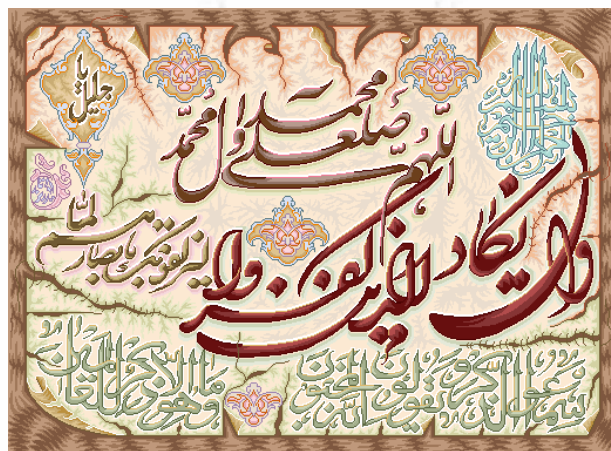 بسم الله الرحمن الرحيم
يا جليل
اللهم صل على محمد وآل محمد
وان يكاد الذين كفروا
ليزلقونك بابصارهم لما
سمعوا الذكر ويقولون انه لمجنون
وما هو الا ذكر للعالمين